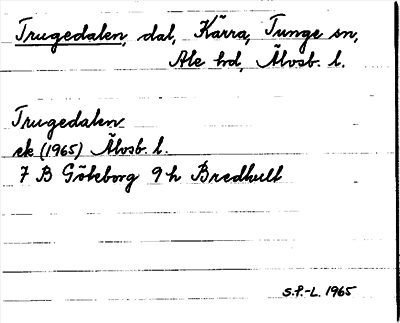 Trugedalen, dal, Kärra, Tunge sn,
Ale hd, Älvsb. l.
Trugedalen
ek (1965) Älvsb. l.
7 B Göteborg 9 h Bredhult
S.F.-L. 1965